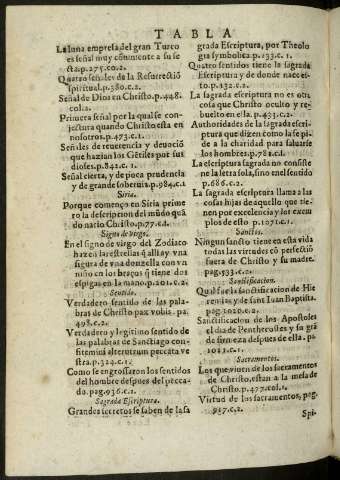 TABLA
La luna empresa del gran Turco
es señal muy cōminente a su se
cta. p. 275. co. 2.
Quatro señales de la Resurrectiō
spiritual. p. 380. c. 2.
Señal de Dios en Christo. p. 448.
col. 2.
Primera señal por la qual se con-
jectura quando Christo esta en
nosotros. p. 473. c. 1.
Señales de reuerencia y deuociō
que hazian los Gētiles por sus
dioses. p. 842. c. 1.
Señal cierta, y de poca prudencia
y de grande soberuia. p. 984. c. 1
Siria.
Porque començo en Siria prime
ro la descripcion del mūdo quā
do nacio Christo. p. 77. cd.
Signo de virgo.
En el signo de virgo del Zodiaco
hazen las estrellas q̄ alli ay vna
figura de vna donzella con vn
niño en los braços q̄ tiene dos
espigas en la mano. p. 201. c. 2.
Sentido.
Verdadero sentido de las pala
bras de Christo pax vobis. pa
498. c. 2.
Verdadero y legitimo sentido de
las palabras de Sanctiago con-
fitemini alterutrum peccata ve
stra. p. 324. c. 1.
Como se engrossaron los sentidos
del hombre despues del pecca-
do. pag. 936. c. 1.
Sagrada Escriptura.
Grandes secretos se saben de la sa
grada Escriptura, por Theolo
gia symbolica. p. 133. c. 1.
Quatro sentidos tiene la sagrada
Escriptura y de donde nace es-
to. p. 132. c. 2.
La sagrada escriptura no es otra
cosa que Christo oculto y re-
buelto en ella. p. 431. c. 2.
Authoridades de la sagrada escri-
ptura que dizen como la se pi-
de a la charidad para saluarse
los hombres. p. 781. c. 1.
La escriptura sagrada no consiste
ne la letra sola, sino en el sentido
p. 686. c. 2.
La sagrada escriptura llama a las
cosas hijas de aquello que tie-
nen por excelencia y los exem
plos de esto p. 1071. c. 1.
Sanctos.
Ningun sancto tiene en esta vida
todas las virtudes cō perfectiō
fuera de Christo y su madre.
pag. 533. c. 2.
Sanctificacion.
Qual fue la sanctificacion de Hie
remias, y de sant Iuan Baptista.
pag. 1020. c. 2.
Sanctificacion de los Apostoles
el dia de Penthecostes y su grā
de firmeza despues de ella. pa.
1021. c. 1.
Sacramentos.
Los que viuen de los sacramentos
de Christo, estan a la mesa de
Christo. p. 477. col. 1.
Virtud de los sacramentos, pag.
937. c. 2.
Spi-